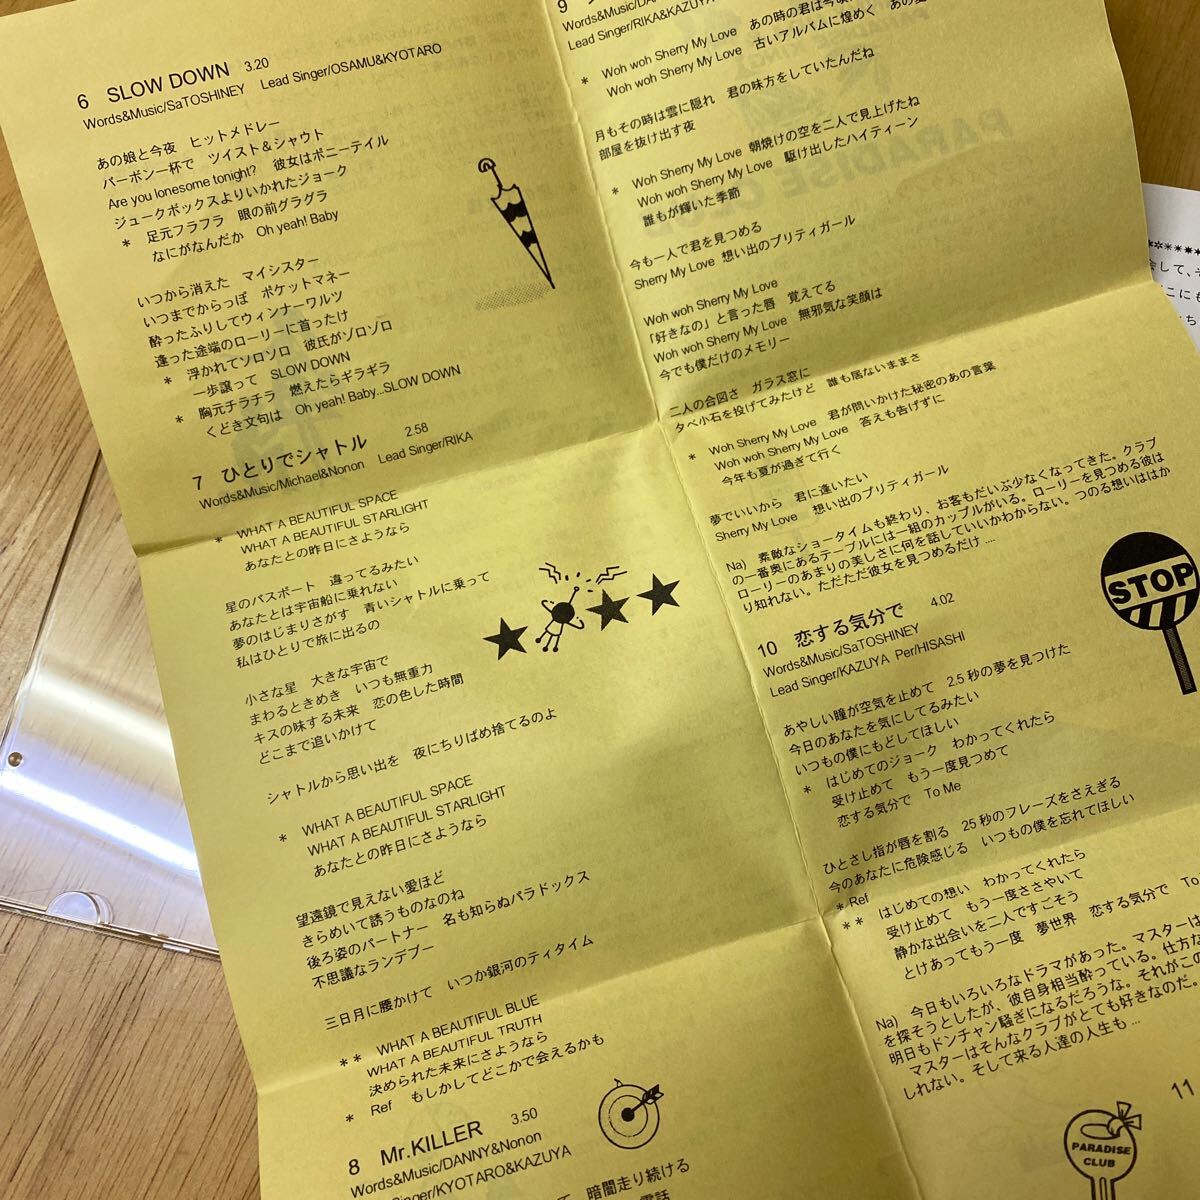 6 SLOW DOWN 3.20
Words&Music/SaTOSHINEY Lead Singer/OSAMU&KYOTARO
あの娘と今夜 ヒットメドレー
バーボン一杯で ツイスト&シャウト
Are you lonesome tonight? 彼女はポニーテイル
ジュークボックスよりいかれたジョーク
* 足元フラフラ 眼の前グラグラ
なにがなんだか Oh yeah! Baby
いつから消えた マイシスター
いつまでからっぽ ポケットマネー
酔ったふりしてウィンナーワルツ
逢った途端のローリーに首ったけ
* 浮かれてゾロゾロ 彼氏がゾロゾロ
一歩譲って SLOW DOWN
* 胸元チラチラ 燃えたらギラギラ
くどき文句は Oh yeah! Baby...SLOW DOWN
7 ひとりでシャトル 2.58
Words&Music/Michael&Nonon Lead Singer/RIKA
* WHAT A BEAUTIFUL SPACE
WHAT A BEAUTIFUL STARLIGHT
あなたとの昨日にさようなら
星のパスポート 違ってるみたい
あなたとは宇宙船に乗れない
夢のはじまりさがす 青いシャトルに乗って
私はひとりで旅に出るの
小さな星 大きな宇宙で
まわるときめき いつも無重力
キスの味する未来 恋の色した時間
どこまで追いかけて
シャトルから思い出を 夜にちりばめ捨てるのよ
* WHAT A BEAUTIFUL SPACE
WHAT A BEAUTIFUL STARLIGHT
あなたとの昨日にさようなら
望遠鏡で見えない愛ほど
きらめいて誘うものなのね
後ろ姿のパートナー 名も知らぬパラドックス
不思議なランデブー
三日月に腰かけて いつか銀河のティタイム
** WHAT A BEAUTIFUL BLUE
WHAT A BEAUTIFUL TRUTH
決められた未来にさようなら
* Ref もしかしてどこかで会えるかも
8 Mr.KILLER 3.50
Words&Music/DANNY&Nonon
Singer/KYOTARO&KAZUYA
て 暗闇走り続ける
電話
9
Words&Music/DA
Lead Singer/RIKA&KAZUYA
* Woh woh Sherry My Love あの時の君は今
Woh woh Sherry My Love 古いアルバムに煌めく あの
月もその時は雲に隠れ 君の味方をしていたんだね
部屋を抜け出す夜
* Woh Sherry My Love 朝焼けの空を二人で見上げたね
Woh woh Sherry My Love 駆け出したハイティーン
誰もが輝いた季節
今も一人で君を見つめる
Sherry My Love 想い出のプリティガール
Woh woh Sherry My Love
「好きなの」と言った唇 覚えてる
Woh woh Sherry My Love 無邪気な笑顔は
今でも僕だけのメモリー
二人の合図さ ガラス窓に
夕べ小石を投げてみたけど 誰も居ないままさ
* Woh Sherry My Love 君が問いかけた秘密のあの言葉
Woh woh Sherry My Love 答えも告げずに
今年も夏が過ぎて行く
夢でいいから 君に逢いたい
Sherry My Love 想い出のプリティガール
Na) 素敵なショータイムも終わり、お客もだいぶ少なくなってきた。クラブ
の一番奥にあるテーブルには一組のカップルがいる。ローリーを見つめる彼は
ローリーのあまりの美しさに何を話していいかわからない。つのる想いははか
り知れない。ただただ彼女を見つめるだけ ....
STOP
10 恋する気分で 4.02
Words&Music/SaTOSHINEY
Lead Singer/KAZUYA Per/HISASHI
あやしい瞳が空気を止めて 2.5秒の夢を見つけた
今日のあなたを気にしてるみたい
いつもの僕にもどしてほしい
* はじめてのジョーク わかってくれたら
受け止めて もう一度見つめて
恋する気分で To Me
ひとさし指が唇を割る 25秒のフレーズをさえぎる
今のあなたに危険感じる いつもの僕を忘れてほしい
* Ref
** はじめての想い わかってくれたら
受け止めて もう一度ささやいて
静かな出会いを二人ですごそう
とけあってもう一度 夢世界 恋する気分で To
Na) 今日もいろいろなドラマがあった。マスターは
を探そうとしたが、彼自身相当酔っている。仕方な
明日もドンチャン騒ぎになるだろうな。それがこの
マスターはそんなクラブがとても好きなのだ。
しれない。そして来る人達の人生も ...
11
PARADISE
CLUB